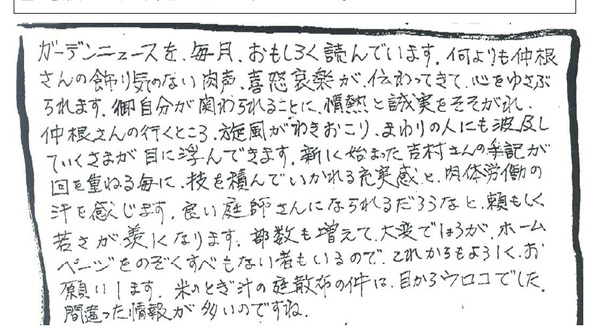 ガーデンニュースを、毎月、おもしろく読んでいます。何よりも仲根
さんの飾り気のない肉声、喜怒哀楽が、伝わってきて、心をゆさぶ
られます。御自分が関わられることに、情熱と誠実をそそがれ、
仲根さんの行くところ、旋風がわきおこり、まわりの人にも波及し
ていくさまが目に浮んできます。新しく始まった吉村さんの手記が
回を重ねる毎に、技を積んでいかれる充実感と、肉体労働の
汗を感じます。良い庭師さんになられるだろうなと、頼もしく
若さが羨しくなります。部数も増えて、大変でしょうが、ホーム
ページをのぞくすべもない者もいるので、これからもよろしく、お
願いします。米のとぎ汁の庭散布の件は、目からウロコでした。
間違った情報が多いのですね。